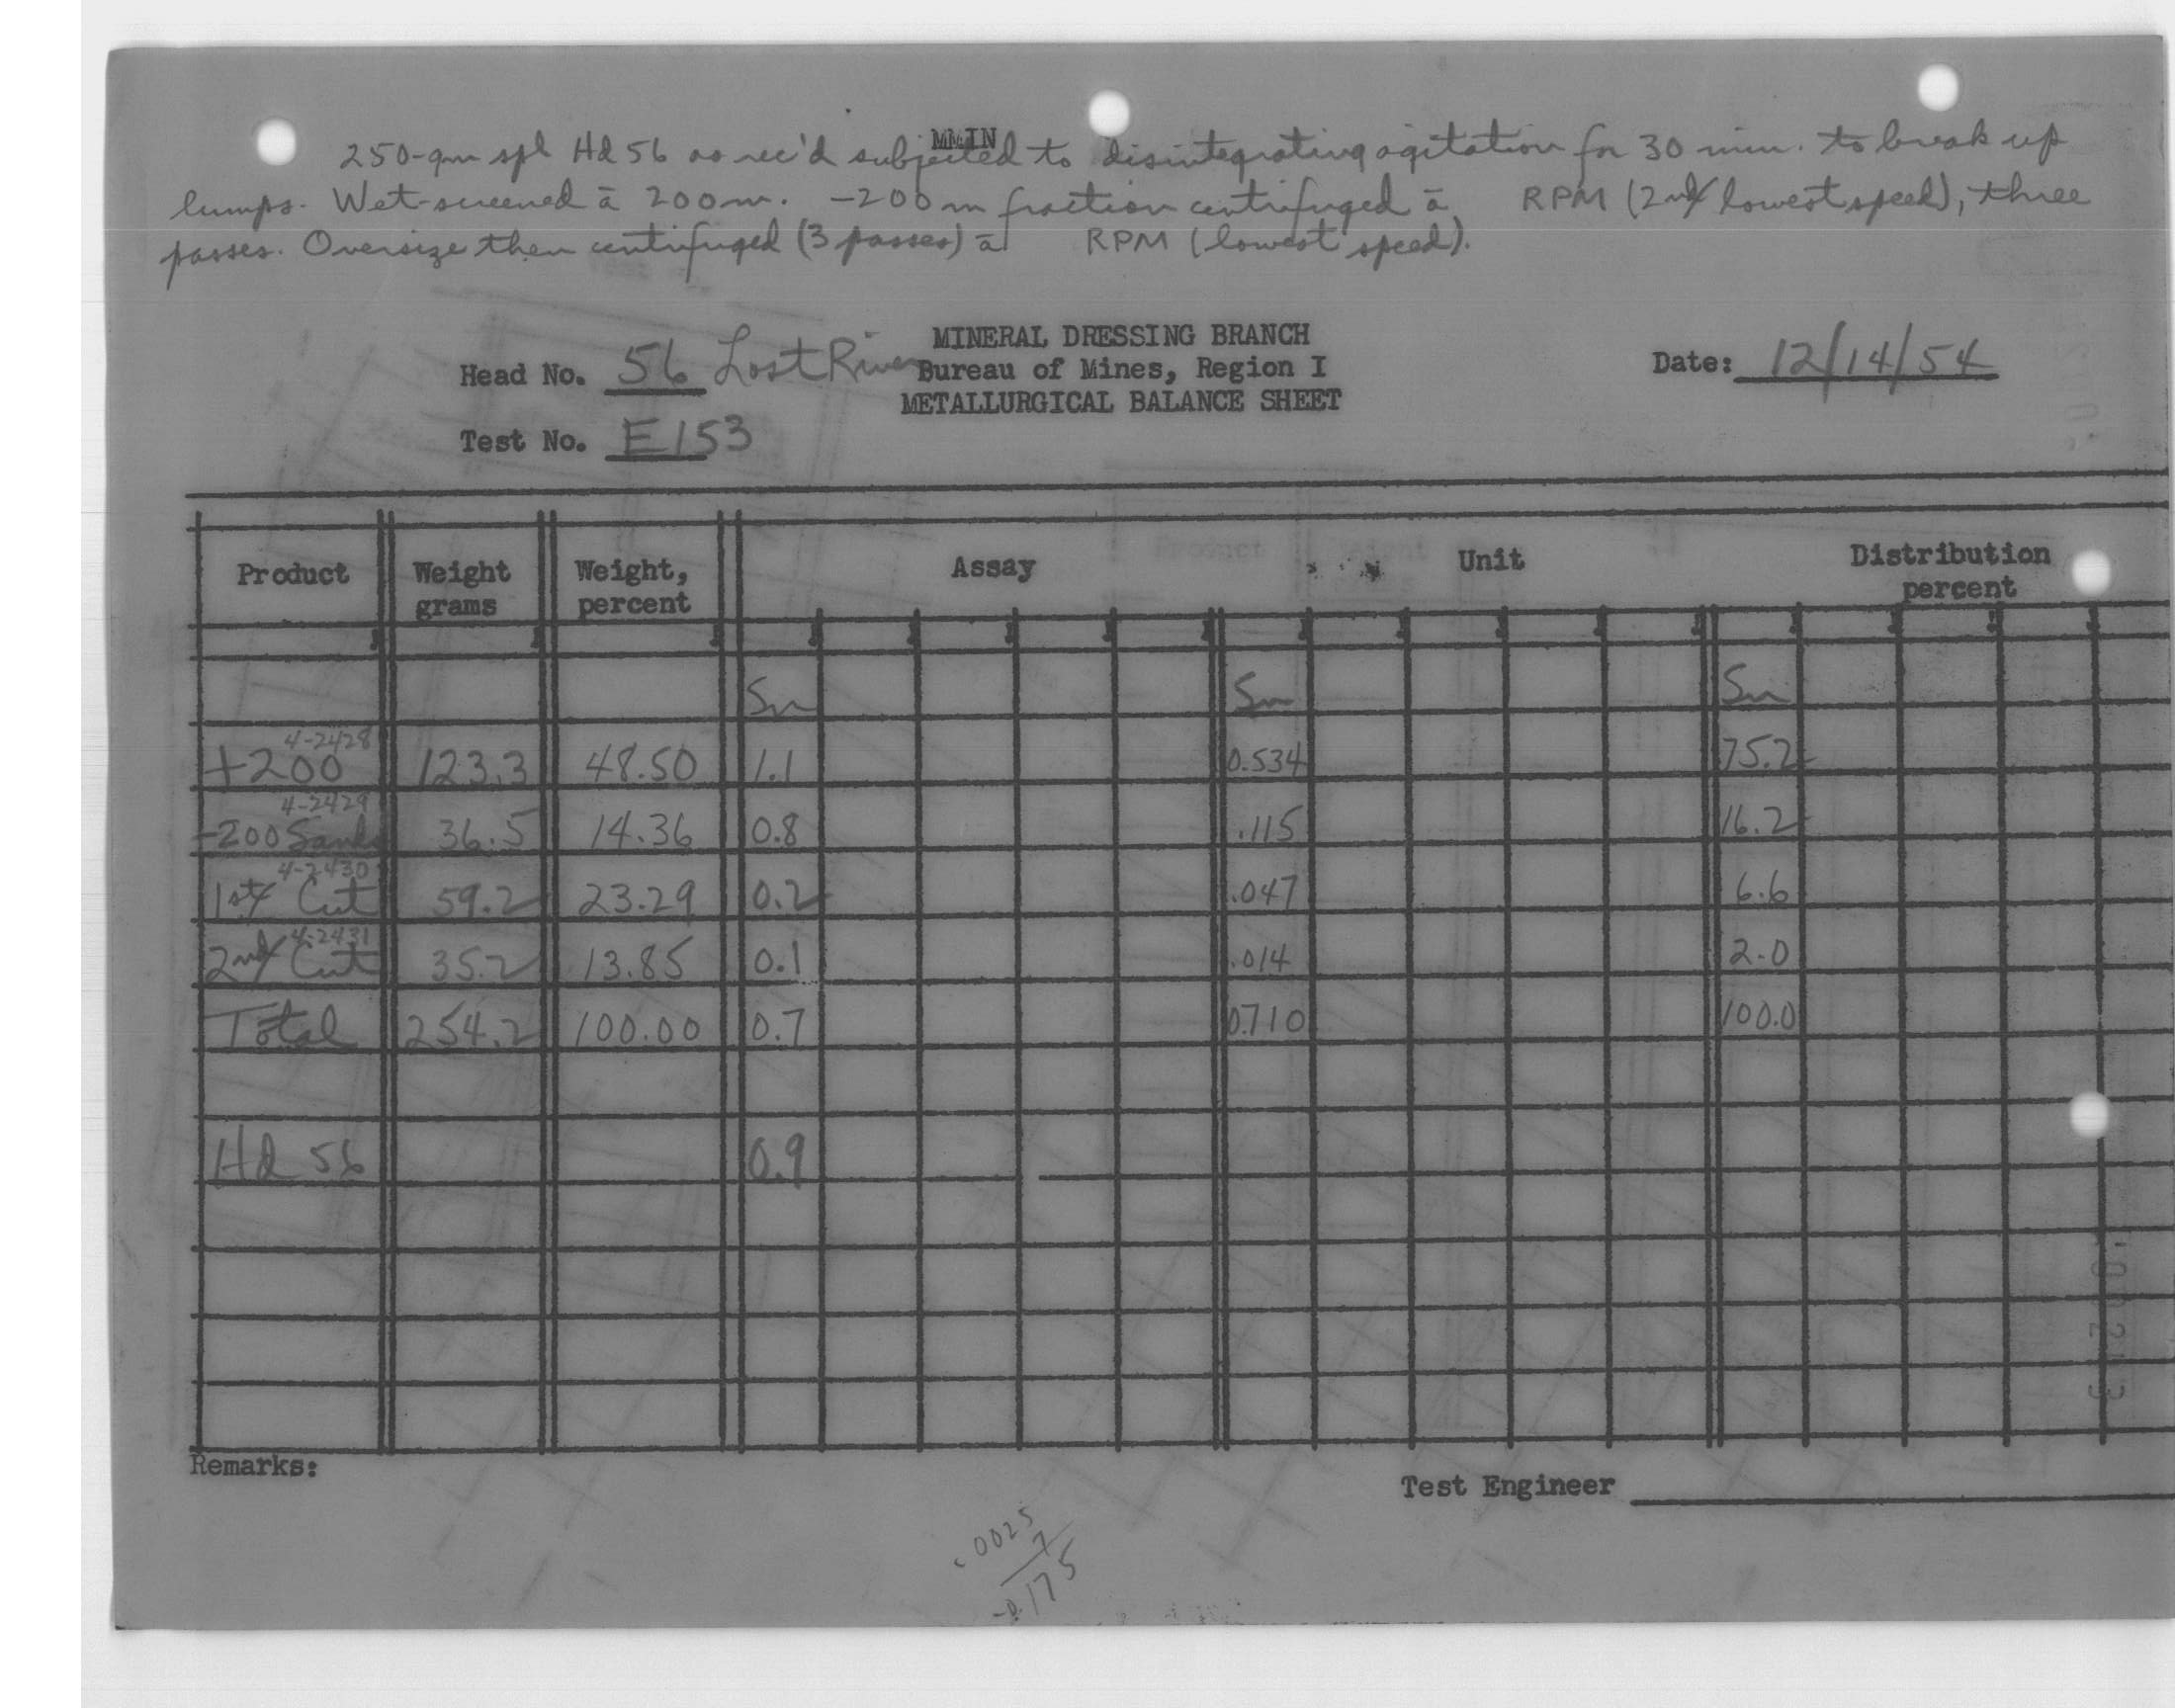 MMIN
250-gm spl Hd 56 as rec'd subjected to disintegrating agitation for 30 min. to break up
lumps. Wet-screened ā 200m. -200m fraction centrifuged ā RPM (2nd lowest speed), three
passes. Oversize then centrifuged (3 passes) ā RPM (lowest speed).
MINERAL DRESSING BRANCH
Head No. 56 Lost River Bureau of Mines, Region I Date: 12/14/54
METALLURGICAL BALANCE SHEET
Test No. E153
Product Weight grams Weight, percent Assay Unit Distribution percent
Sn Sn Sn
4-2428
+200 123.3 48.50 1.1 0.534 75.2
4-2429
-200 Sands 36.5 14.36 0.8 .115 16.2
4-2430
1st Cut 59.2 23.29 0.2 .047 6.6
4-2431
2nd Cut 35.2 13.85 0.1 .014 2.0
Total 254.2 100.00 0.7 0.710 100.0
Hd 56 0.9
Remarks:
Test Engineer
.0025
7